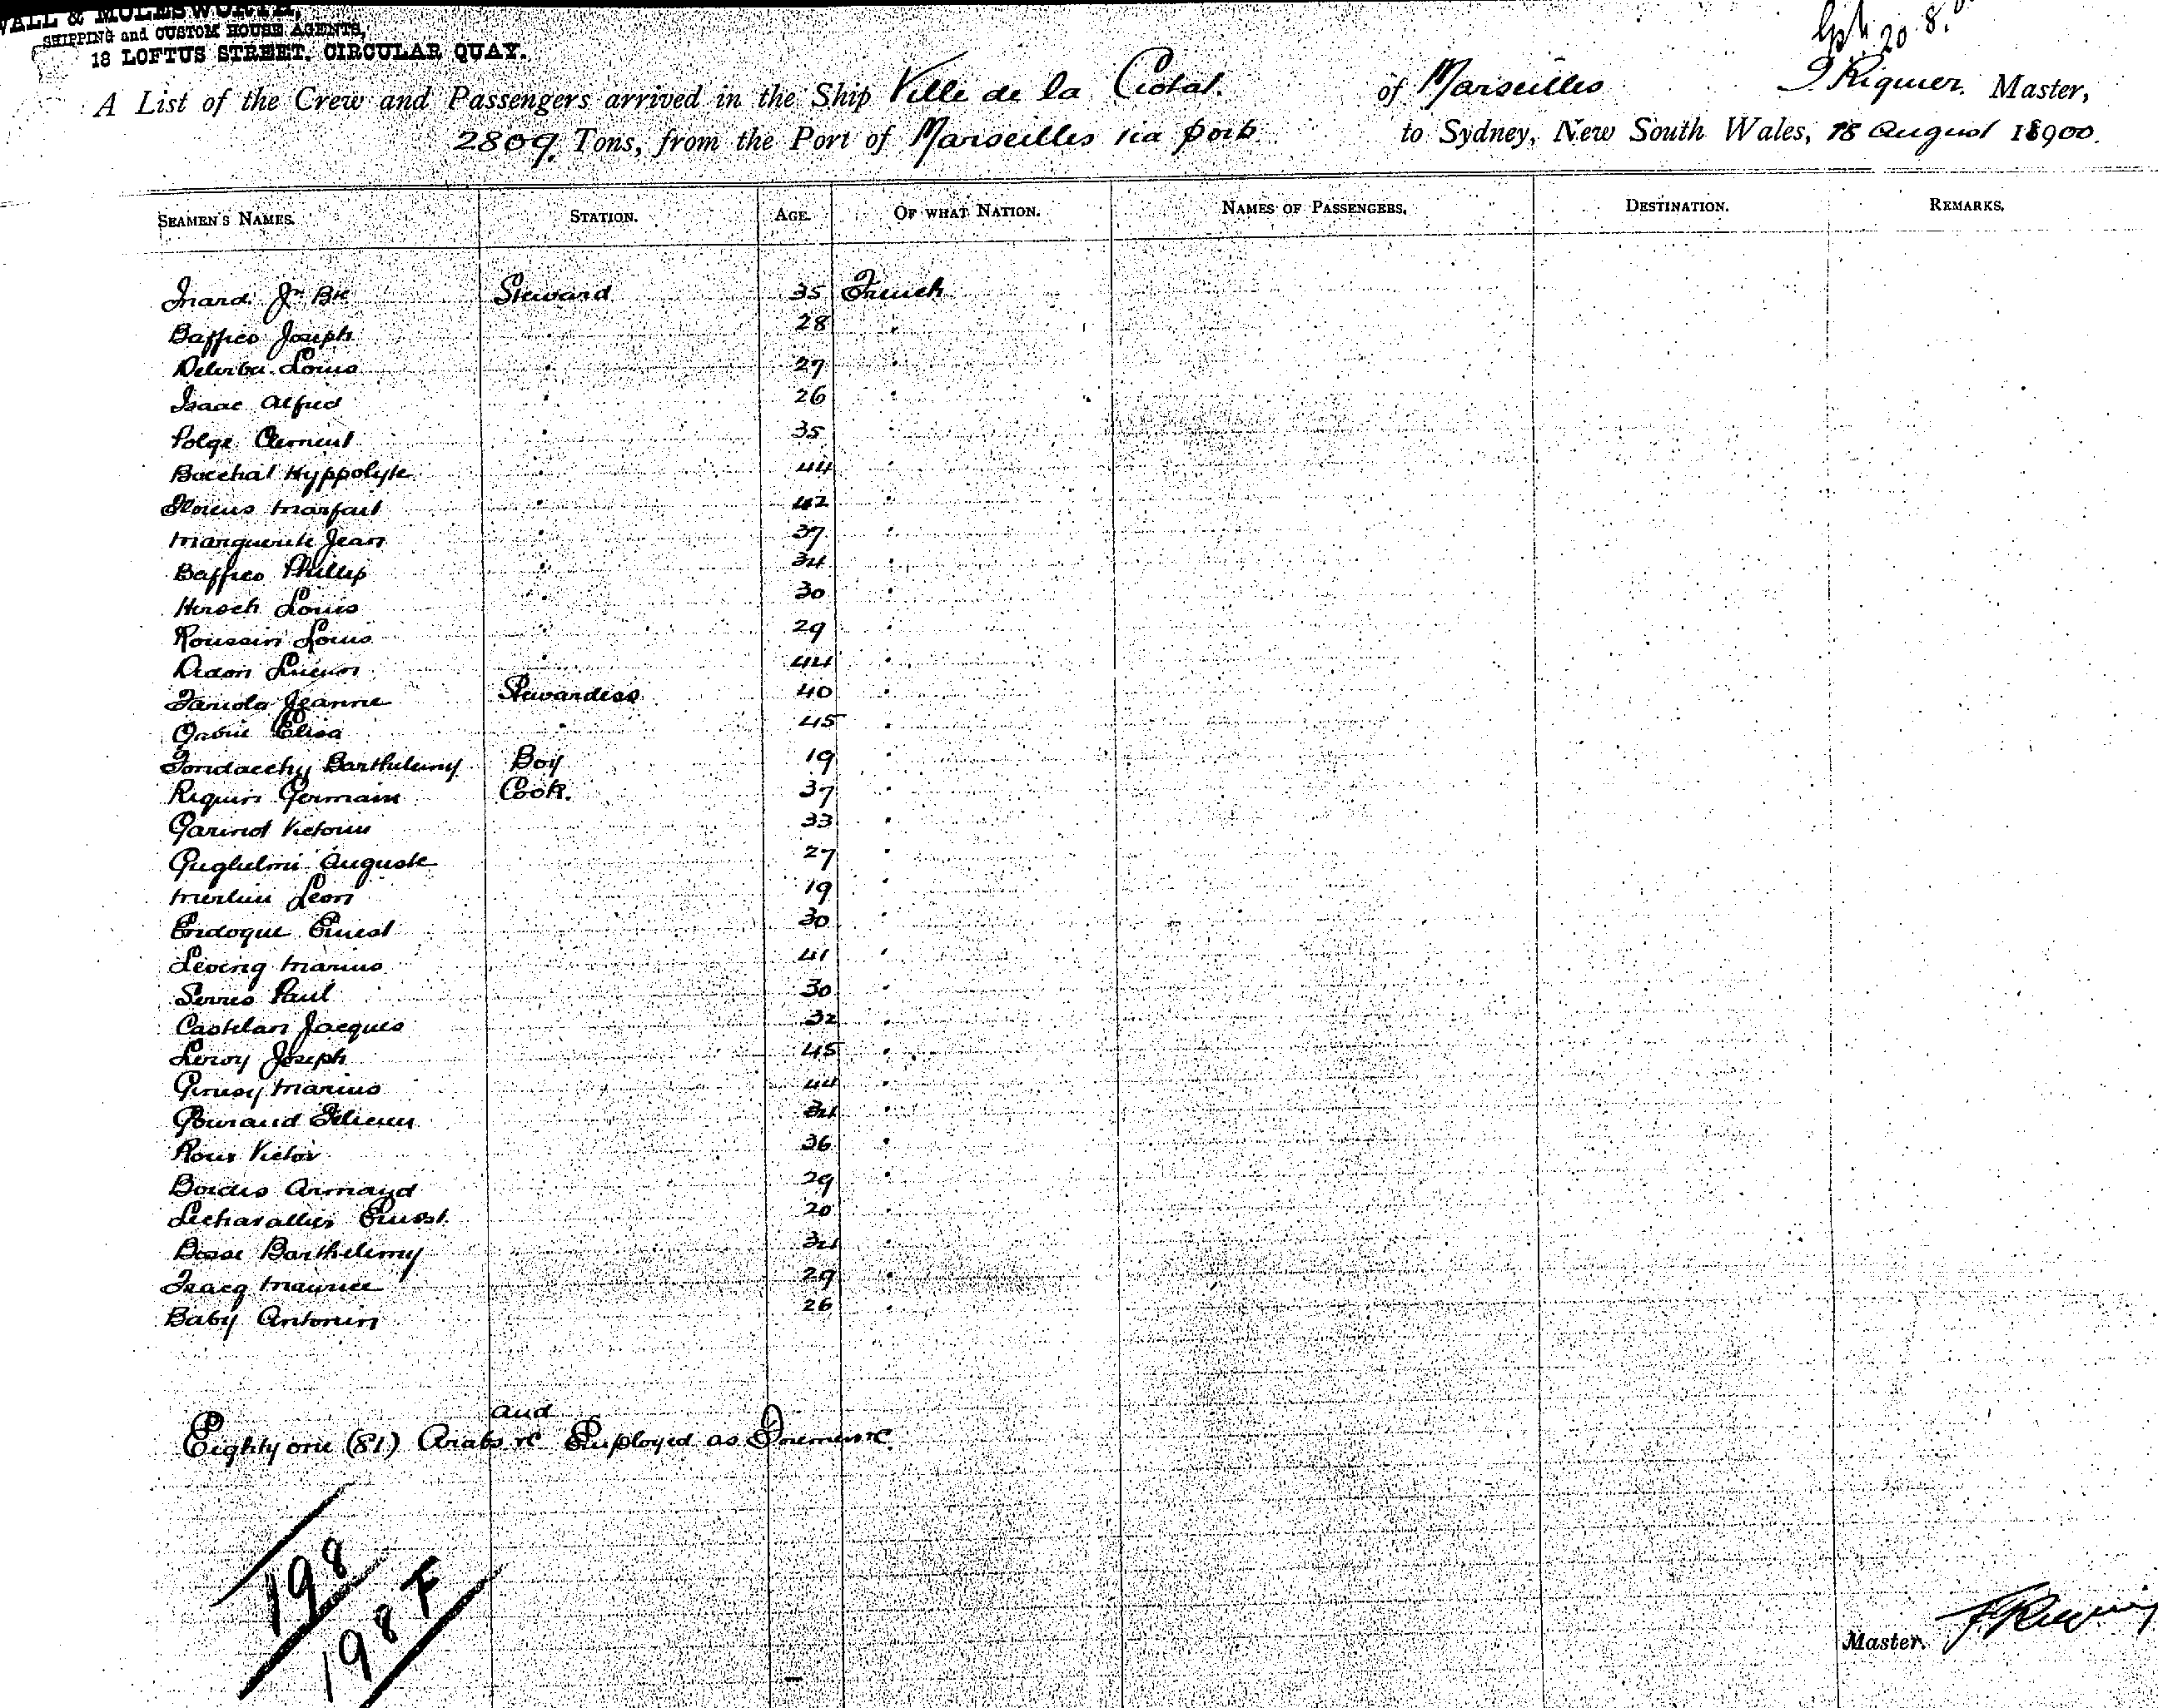 WALL & MOLESWORTH,
SHIPPING and CUSTOM HOUSE AGENTS,
18 LOFTUS STREET, CIRCULAR QUAY.
20.8.
A List of the Crew and Passengers arrived in the Ship Ville de la Ciotat. of Marseilles Riquier. Master,
2809 Tons, from the Port of Marseilles via ports to Sydney, New South Wales, 18 August 1900.
SEAMEN'S NAMES. STATION. AGE. OF WHAT NATION. NAMES OF PASSENGERS. DESTINATION. REMARKS.
Inard Jn Bte Steward 35 French
Baffico Joseph " 28 "
Louis " 27 "
Isaac Alfred " 26 "
Polge Clement " 35 "
Bocchat Hyppolyte " 44 "
" 42 "
Marguerite Jean " 37 "
Baffico Phillip " 34 "
Hirsch Louis " 30 "
Roussin Louis " 29 "
Lucien " 44 "
Jeanne Stewardess 40 "
Elisa " 45 "
Fondacchy Barthelemy Boy 19 "
Riquin Germain Cook. 37 "
Garinot Victorin 33 "
Guglielmi Auguste 27 "
Merlin Leon 19 "
Endoque Ernest 30 "
Marius 41 "
Serres Paul 30 "
Castelan Jacques 32 "
Leroy Joseph 45 "
Marius 44 "
Gouraud 34 "
Roux Victor 36 "
Bordes Armand 29 "
Lechavallier Ernest 20 "
Bosse Barthelemy 34 "
Maurice 29 "
Baby Antonin 26 "
and
Eighty one (81) Arabs &c Employed as Firemen &c.
198
198 F
Master.